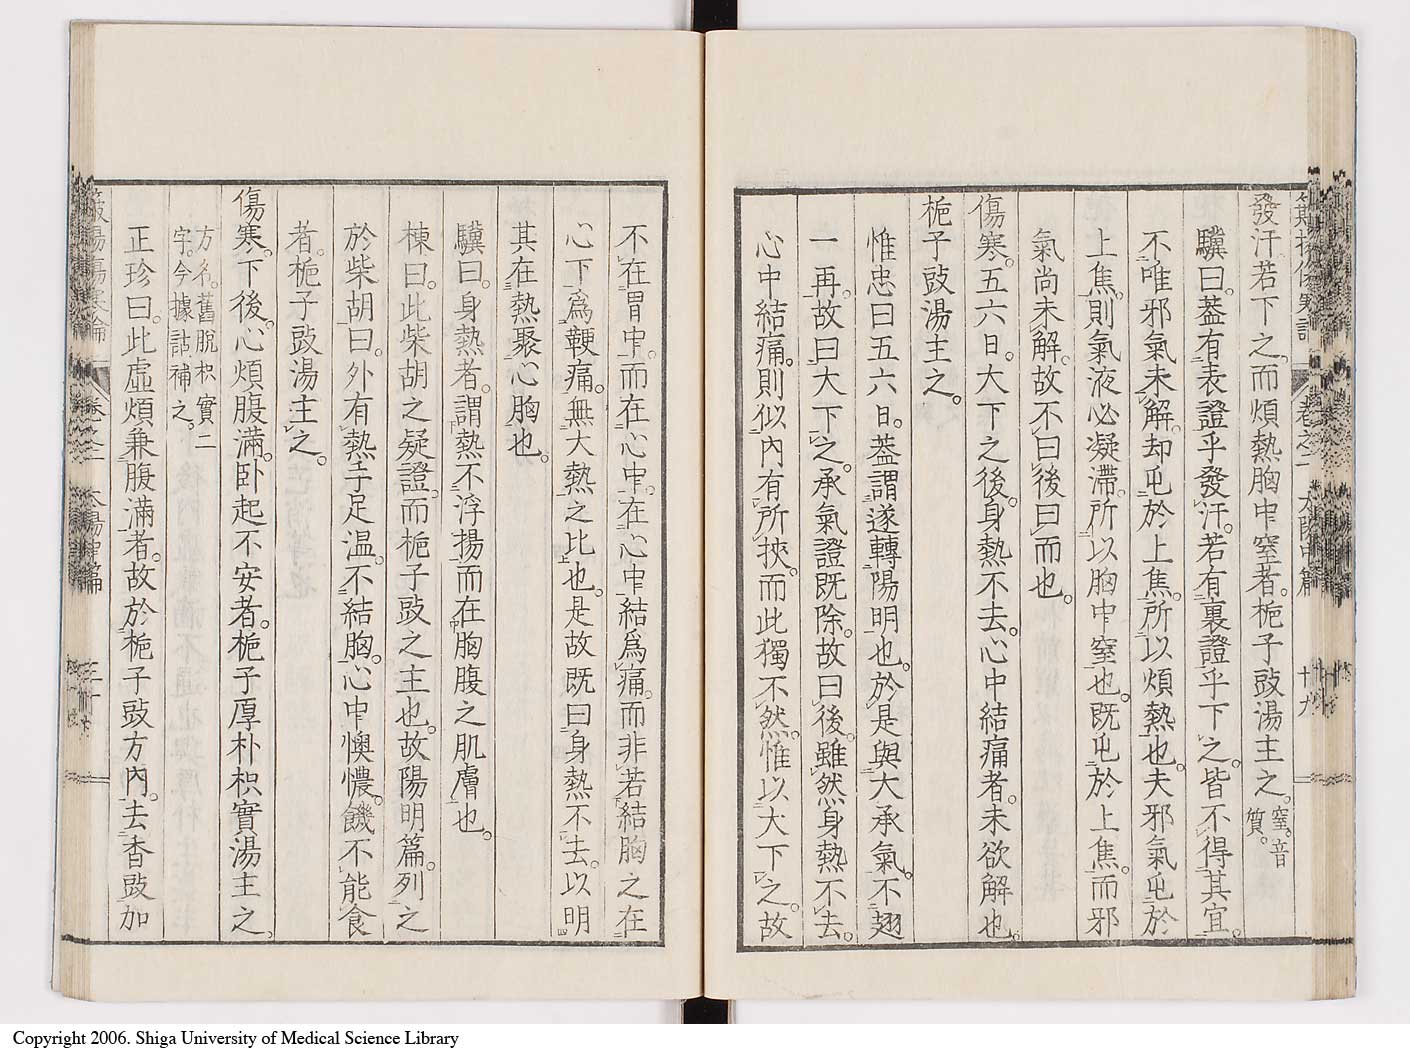 發汗若下之。而煩熱胸中窒者。梔子豉湯主之。窒。音質。
驥曰。蓋有表證乎發汗。若有裏證乎下之。皆不得其宜。
不唯邪氣未解。却屯於上焦。所以煩熱也。夫邪氣屯於
上焦。則氣液必凝滯。所以胸中窒也。既屯於上焦。而邪
氣尚未解。故不曰後曰而也。
傷寒。五六日。大下之後。身熱不去。心中結痛者。未欲解也。
梔子豉湯主之。
惟忠曰五六日。蓋謂遂轉陽明也。於是與大承氣不翅
一再。故曰大下之。承氣證既除。故曰後。雖然身熱不去。
心中結痛。則似內有所挾。而此獨不然。惟以大下之故
不在胃中。而在心中。在心中結爲痛。而非若結胸之在
心下爲鞕痛。無大熱之比也。是故既曰身熱不去。以明
其在熱聚心胸也。
驥曰。身熱者。謂熱不浮揚而在胸腹之肌膚也。
棟曰。此柴胡之疑證。而梔子豉之主也。故陽明篇。列之
於柴胡曰。外有熱手足溫。不結胸。心中懊憹。饑不能食
者。梔子豉湯主之。
傷寒。下後。心煩腹滿。臥起不安者。梔子厚朴枳實湯主之。
方名。舊脫枳實二
字。今據詁補之。
正珍曰。此虛煩兼腹滿者。故於梔子豉方內。去香豉加
Copyright 2006. Shiga University of Medical Science Library